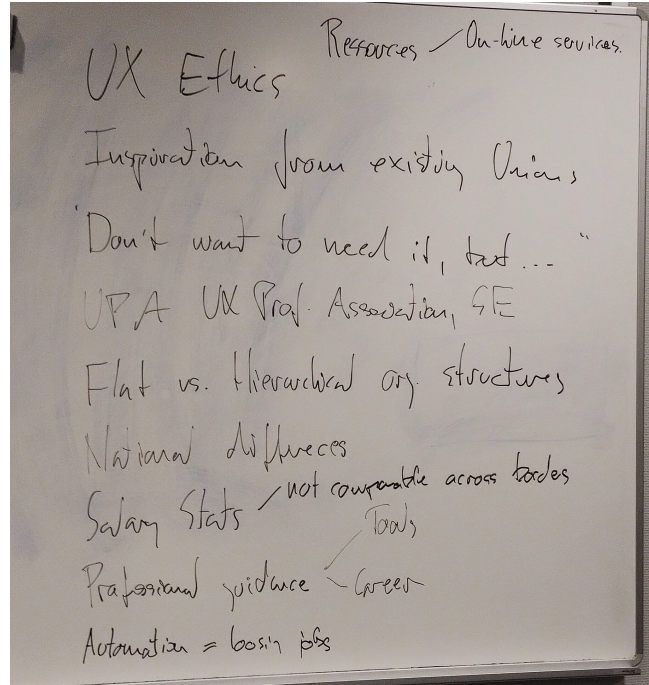 Ressources / On-line services.
UX Ethics
Inspiration from existing Unions
"Don't want to need it, but... "
UPA UX Prof. Association, SE
Flat vs. Hierarchical org. structures
National differeces
Salary Stats / not comparable across bordes
Tools
Professional guidance - Career
Automation = losin jobs